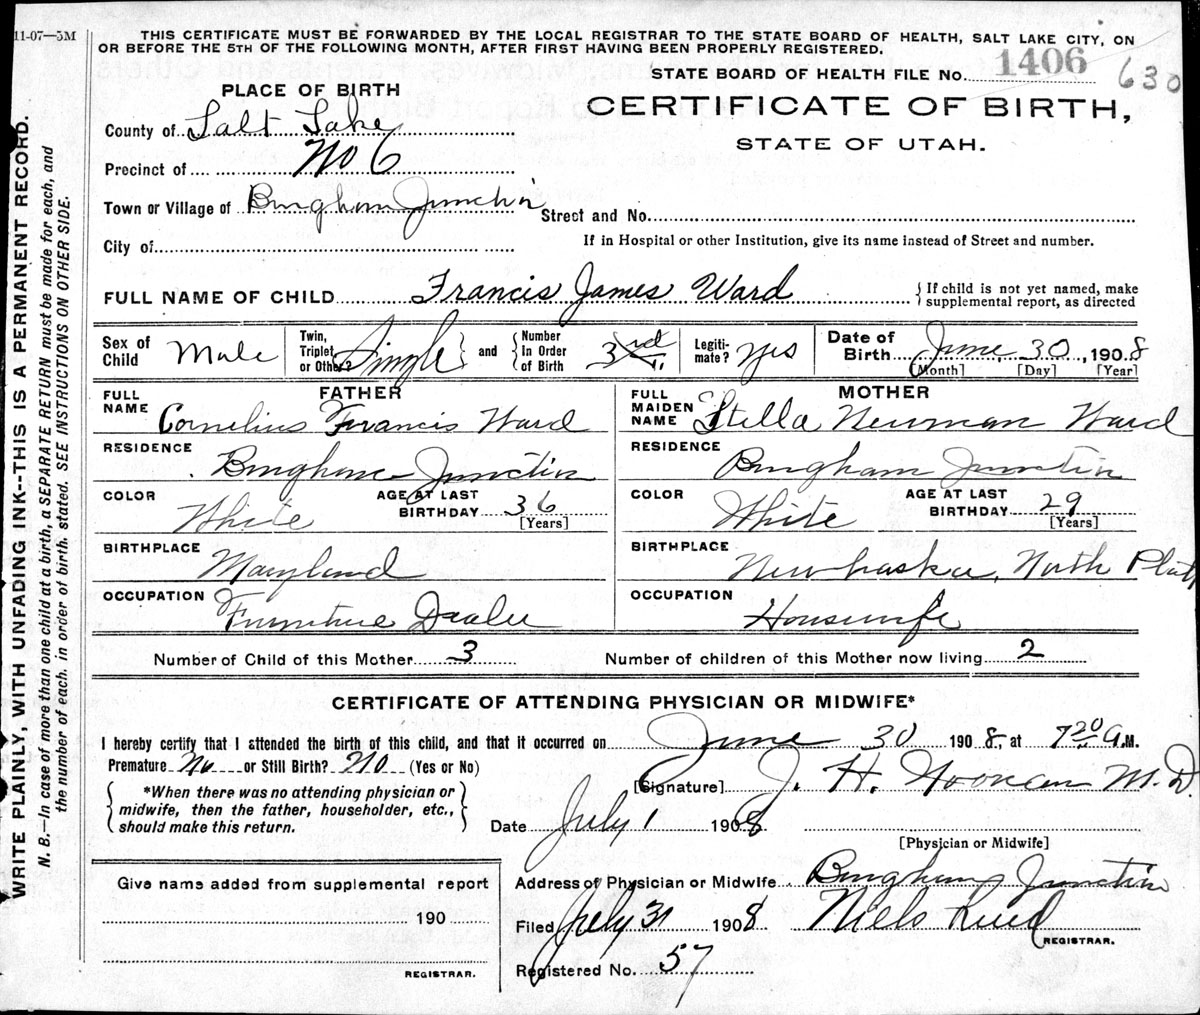 11-07—5M
THIS CERTIFICATE MUST BE FORWARDED BY THE LOCAL REGISTRAR TO THE STATE BOARD OF HEALTH, SALT LAKE CITY, ON
OR BEFORE THE 5TH OF THE FOLLOWING MONTH, AFTER FIRST HAVING BEEN PROPERLY REGISTERED.
STATE BOARD OF HEALTH FILE No. 1406 630
PLACE OF BIRTH
CERTIFICATE OF BIRTH,
STATE OF UTAH.
County of Salt Lake
Precinct of No 6
Town or Village of Bingham Junction Street and No.
City of If in Hospital or other Institution, give its name instead of Street and number.
FULL NAME OF CHILD Francis James Ward { If child is not yet named, make
supplemental report, as directed
Sex of Child Male Twin, Triplet, or Other? Single and Number In Order of Birth 3rd Legiti-mate? Yes Date of Birth June 30, 1908
[Month] [Day] [Year]
FATHER MOTHER
FULL NAME Cornelius Francis Ward FULL MAIDEN NAME Stella Newman Ward
RESIDENCE Bingham Junction RESIDENCE Bingham Junction
COLOR White AGE AT LAST BIRTHDAY 36 [Years] COLOR White AGE AT LAST BIRTHDAY 29 [Years]
BIRTHPLACE Maryland BIRTHPLACE Newbraska, North Platt
OCCUPATION Furniture Dealer OCCUPATION Housewife
Number of Child of this Mother 3 Number of children of this Mother now living 2
CERTIFICATE OF ATTENDING PHYSICIAN OR MIDWIFE*
I hereby certify that I attended the birth of this child, and that it occurred on June 30 1908, at 7 20 A.M.
Premature No or Still Birth? No (Yes or No)
[Signature] J. H. Noonan M.D.
{ *When there was no attending physician or
midwife, then the father, householder, etc.,
should make this return. }
Date July 1 1908
[Physician or Midwife]
Address of Physician or Midwife Bingham Junction
Filed July 31 1908 Niels Lind
REGISTRAR.
Registered No. 57
Give name added from supplemental report
190
REGISTRAR.
WRITE PLAINLY, WITH UNFADING INK--THIS IS A PERMANENT RECORD.
N. B.—In case of more than one child at a birth, a SEPARATE RETURN must be made for each, and
the number of each, in order of birth, stated. SEE INSTRUCTIONS ON OTHER SIDE.